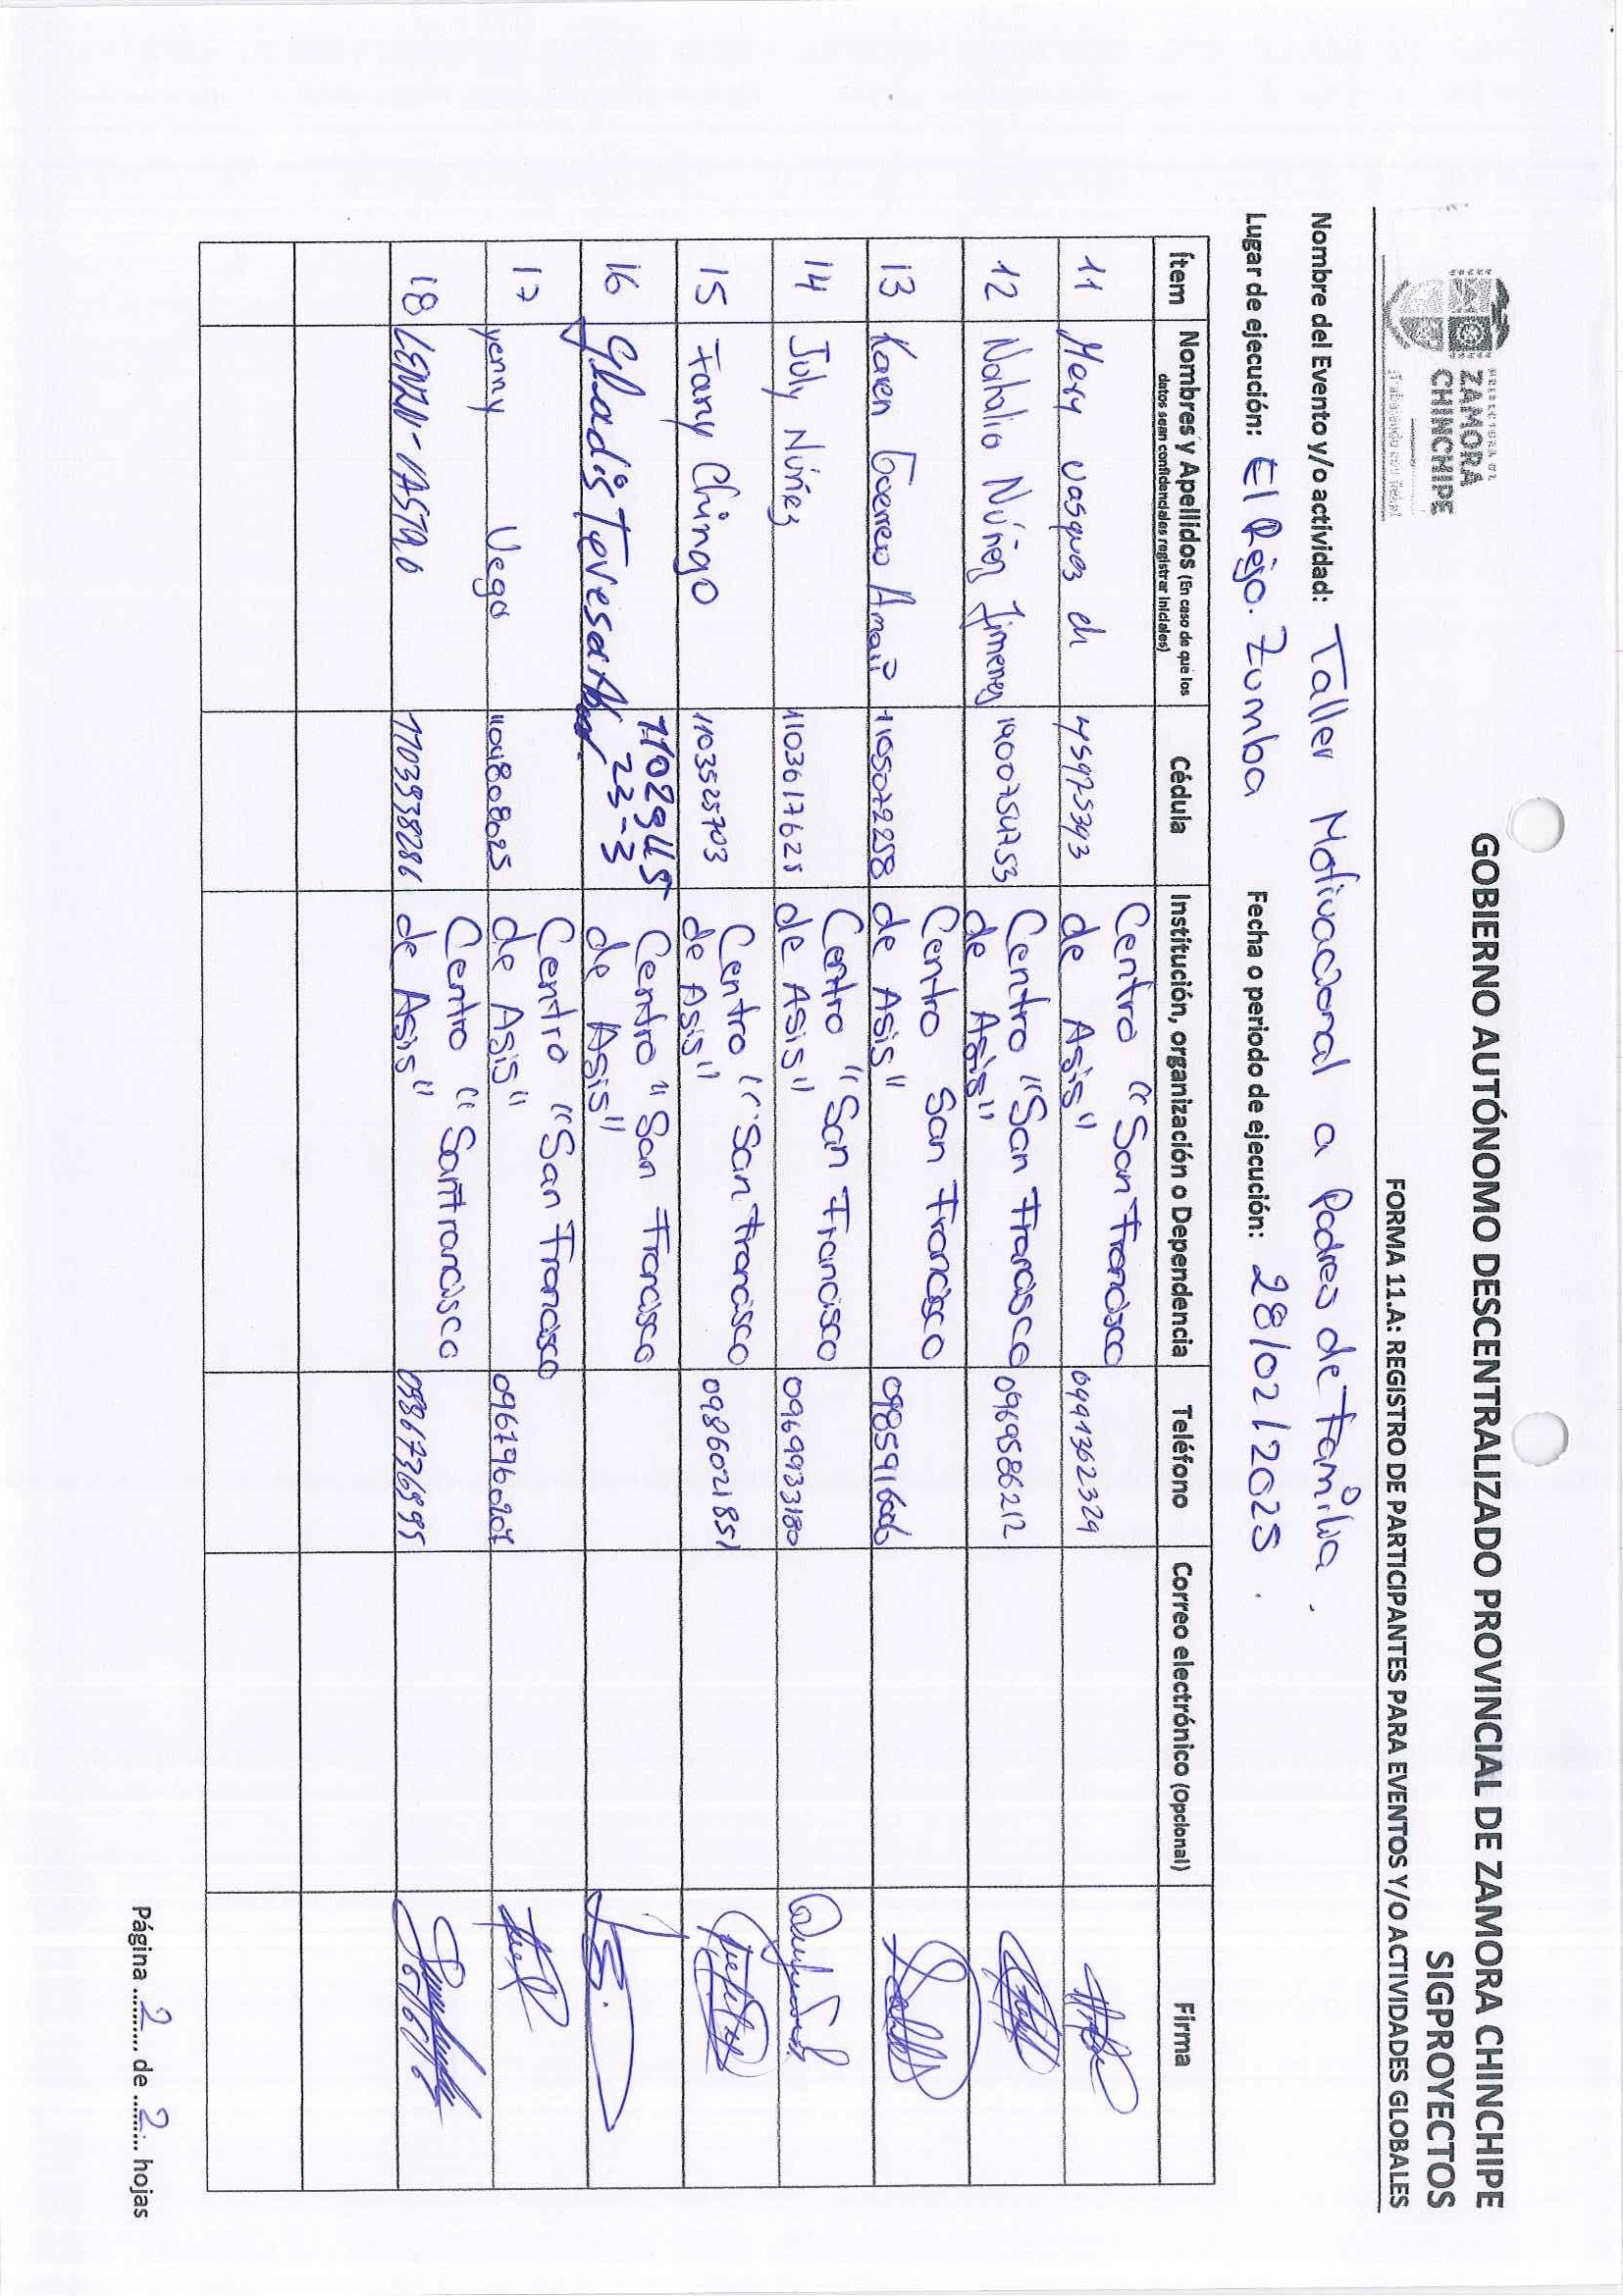 GOBIERNO AUTÓNOMO DESCENTRALIZADO PROVINCIAL DE ZAMORA CHINCHIPE
SIGPROYECTOS
ZAMORA
CHINCHIPE
FORMA 11.A: REGISTRO DE PARTICIPANTES PARA EVENTOS Y/O ACTIVIDADES GLOBALES
Nombre del Evento y/o actividad: Taller Motivacional a Padres de Familia.
Lugar de ejecución: El Rejo. Zumba Fecha o periodo de ejecución: 28/02/2025.
Ítem Nombres y Apellidos (En caso de que los datos sean confidenciales registrar iniciales) Cédula Institución, organización o Dependencia Teléfono Correo electrónico (Opcional) Firma
11 Mery vasques ch 45975393 Centro "San Francisco de Asis" 0991362329
12 Natalia Núñez Jimenez 1900754753 Centro "San Francisco de Asis" 0969586212
13 Karen Guerrero 1105072258 Centro San Francisco de Asis" 0985916006
14 July Núñez 1103617625 Centro "San Francisco de Asis" 0969933180
15 Fany Chingo 1103525703 Centro "San Francisco de Asis" 0986021851
16 Gladis 1102945 23-3 Centro "San Francisco de Asis"
17 yenny Vega 1104808025 Centro "San Francisco de Asis" 0967960207
18 1103938286 Centro "San Francisco de Asis" 0981736995
Página 2 de 2 hojas